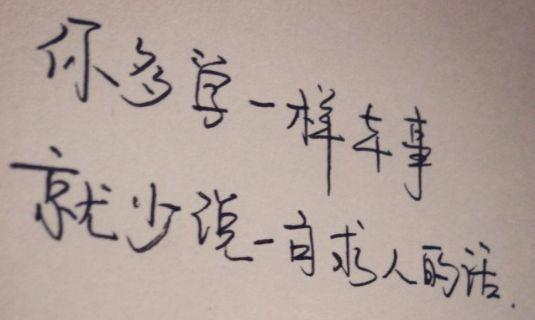 你多学一样本事
就少说一句求人的话.